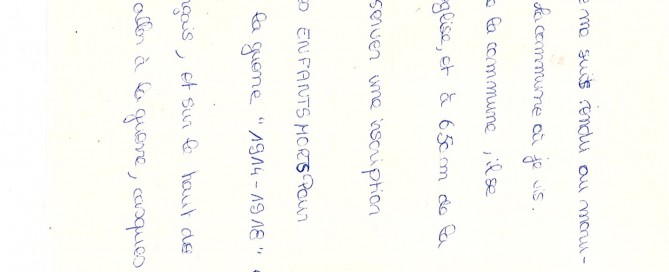 e me suis rendu au monu-
la commune où je vis.
e la commune, il se
glise, et à 650m de la
server une inscription
ENFANTS MORTS Pour
la guerre "1914-1918"
çais, et sur le haut de
aller à la guerre, casques